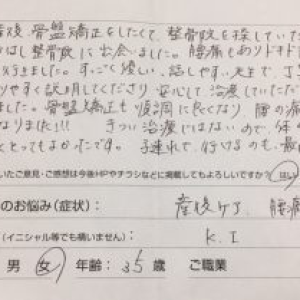 産後、骨盤矯正をしたくて、整骨院を探していた
はし整骨院に出会いました。腰痛もあり
行きました。すっごく優しい、話しやすい先生で、丁
やすく説明してくださり安心して治療していただ
ました。骨盤矯正も順調に良くなり、腰の痛
なりました!!! きつい治療ではないので、
とってもよかったです。子連れで、行けるのも、最
いたご意見・ご感想は今後HPやチラシなどに掲載してもよろしいですか? はい
のお悩み(症状): 産後ケア、腰痛
(イニシャル等でも構いません) K.I
男 女 年齢: 35 歳 ご職業